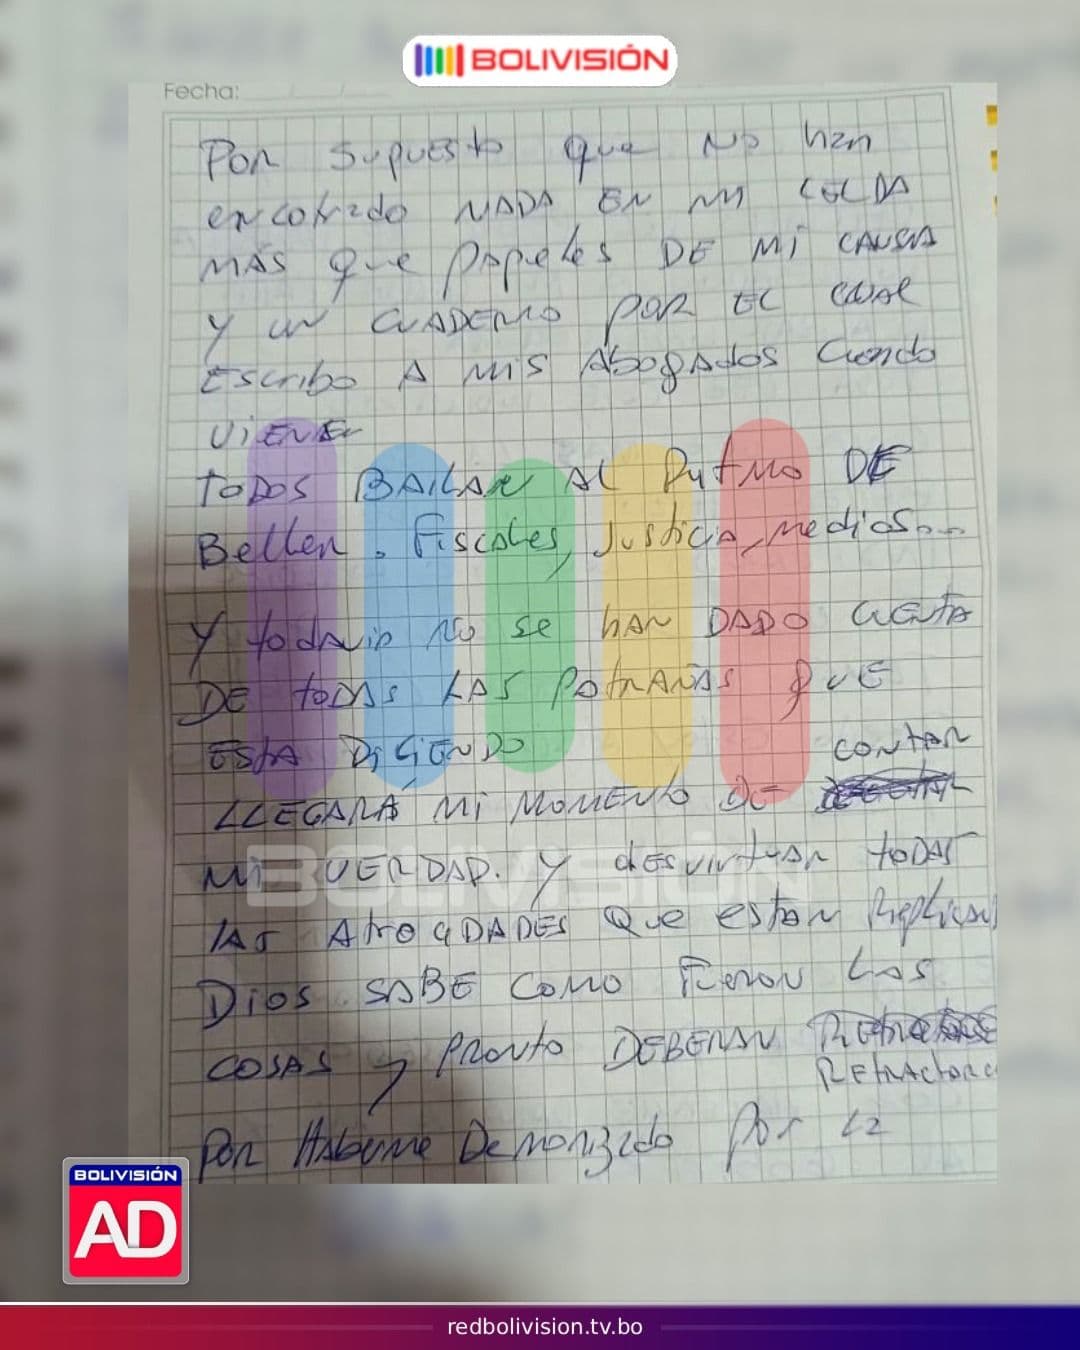 BOLIVISIÓN
Fecha:
Por supuesto que No han
encotrado NADA EN MI CELDA
MÁS que papeles DE Mi CAUSA
y un CUADERNO POR EL cual
Escribo A MIS Abogados Cuando
viENEn
TODOS BAILAN AL Rytmo DE
Bellen. Fiscales, Justicia, medios...
Y todavia no se han DADO cuenta
DE todas LAS PAtRAÑAS que
ESta DiCiENDO CONTAR
LLEGARÁ Mi MOMENTO DE
Mi VERDAD. Y desvirtuar todas
las AtrocidADES Que estan Replican
Dios SABE COMO Fueron Las
COSAS y PRONTO DEBERAN
RetrActarce
por Haberme Demonizado Por la
BOLIVISIÓN
BOLIVISIÓN
AD
redbolivision.tv.bo